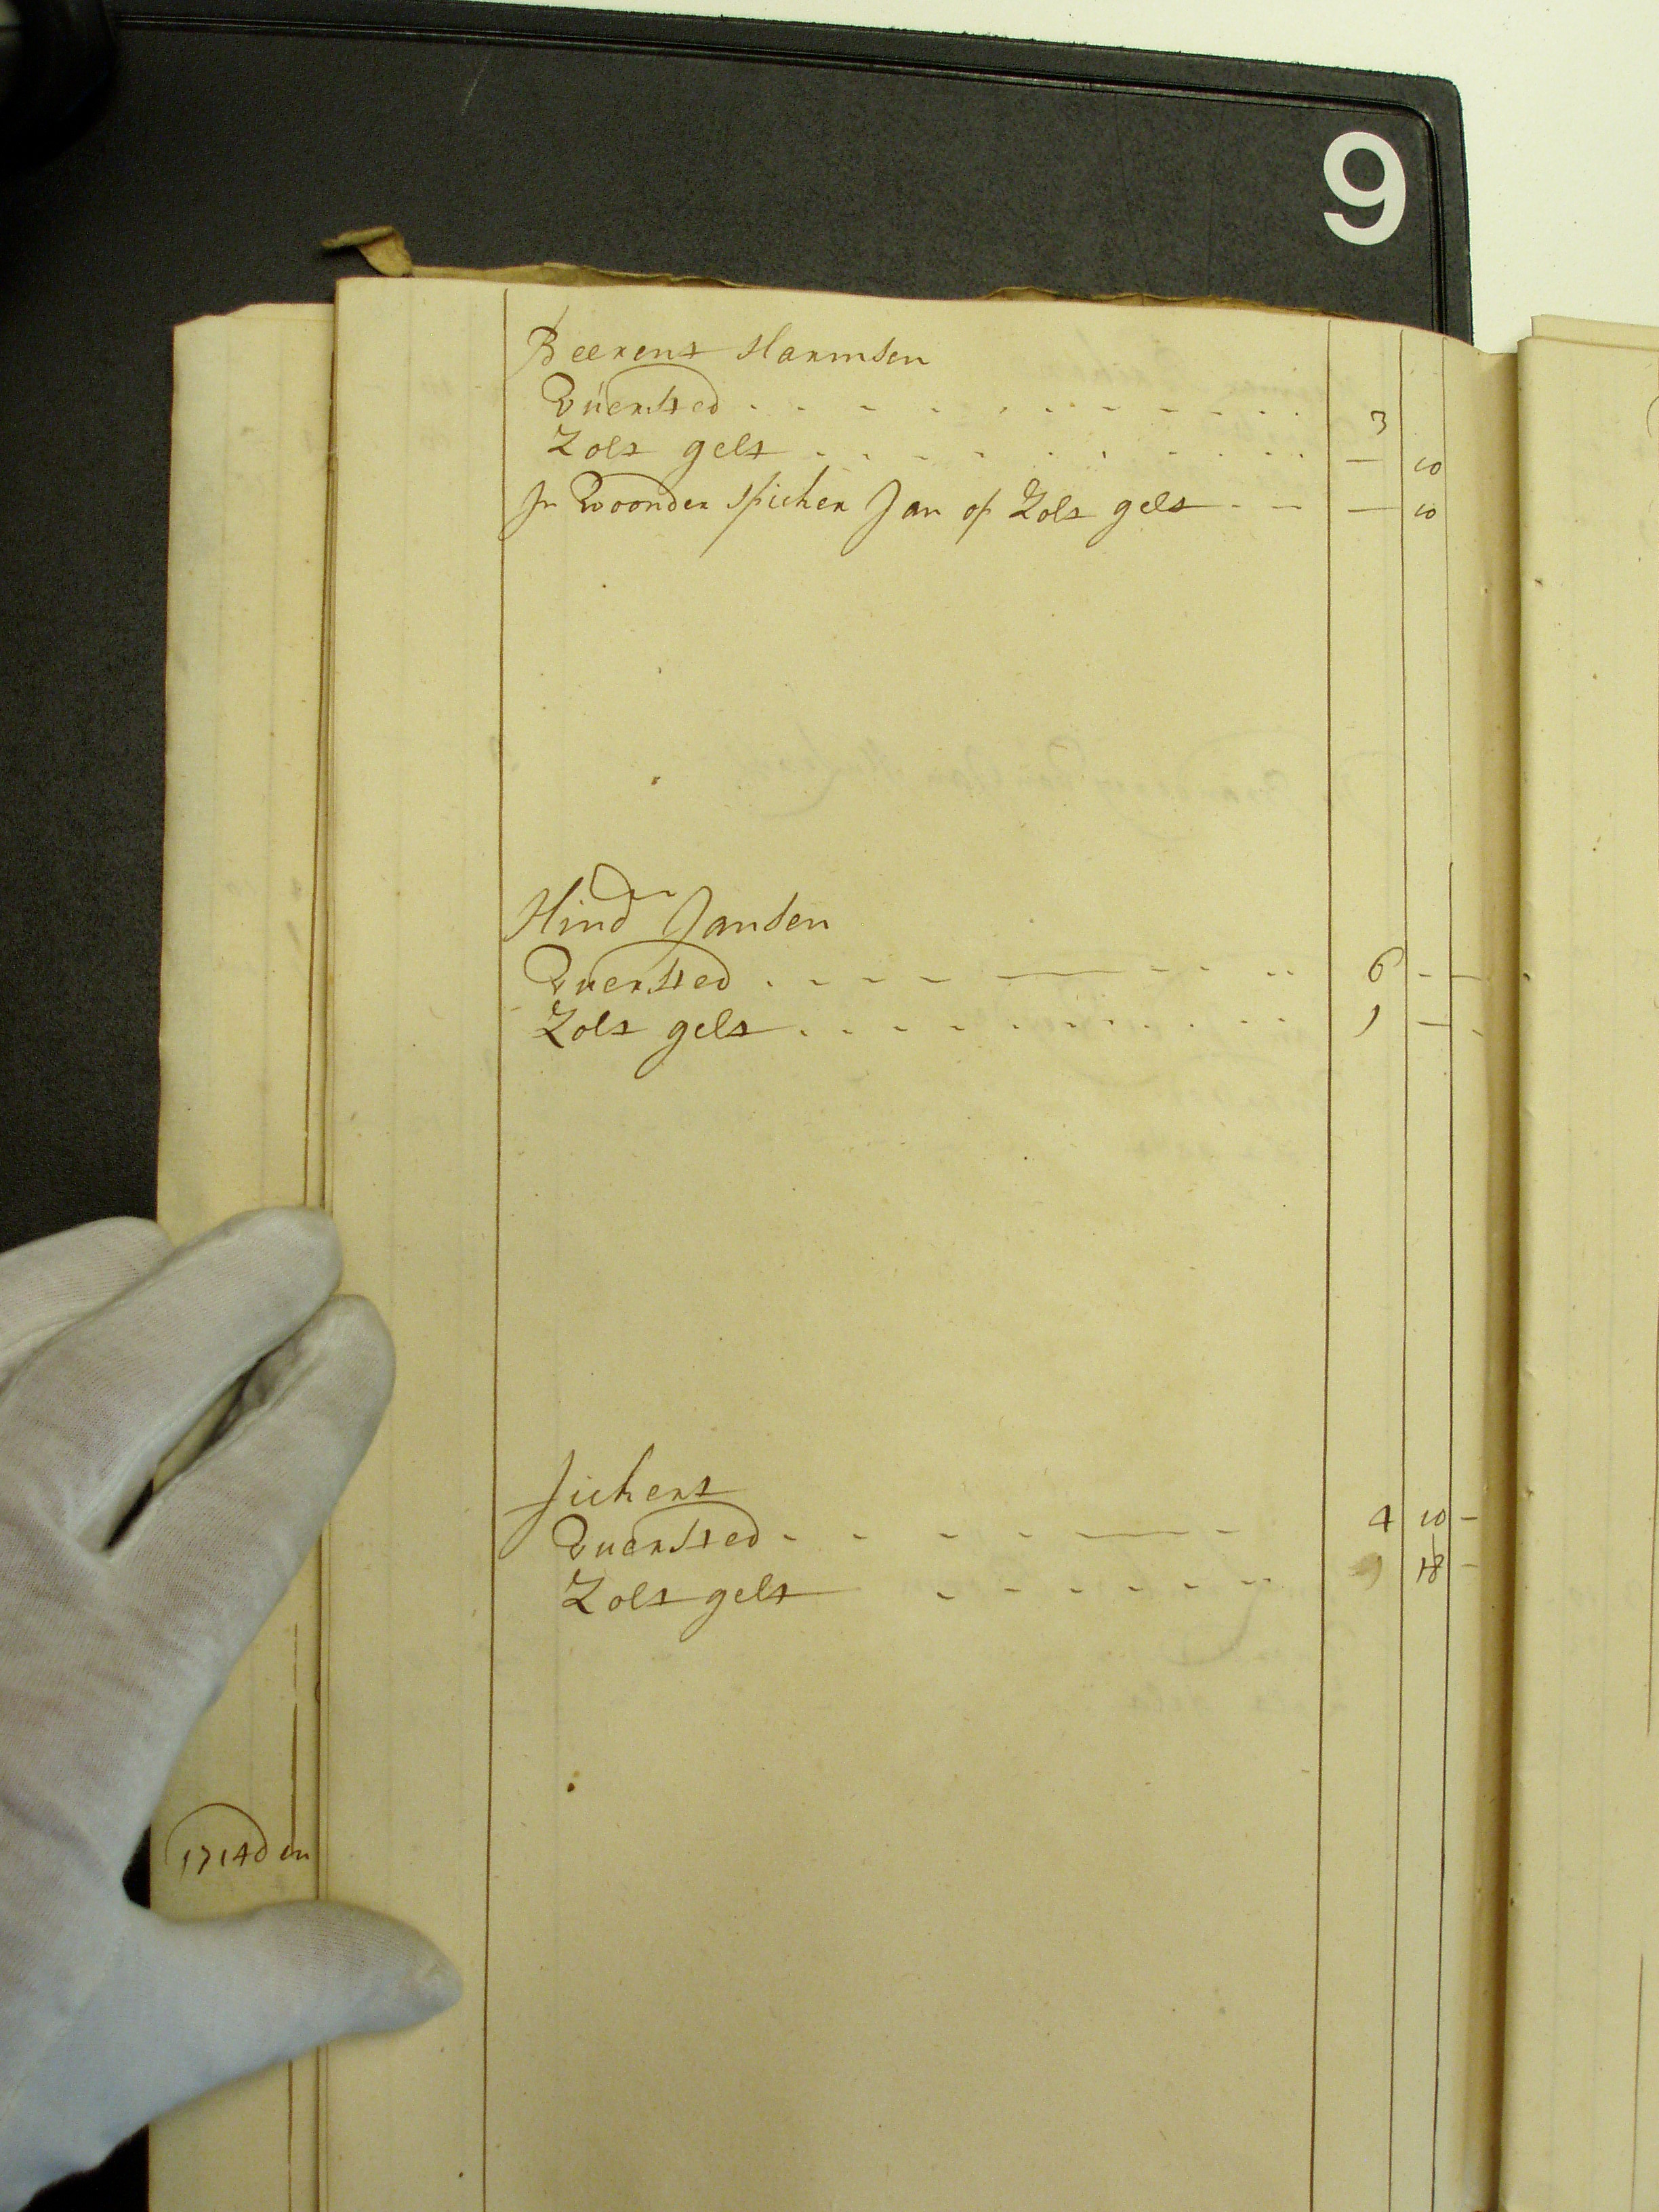 9
Beerent Harmsen
Vüersted 3
Zolt gelt — 10
In Woonder Spieker Jan op Zolt gelt — 10
Hind Jansen
Vuersted 6 -
Zolt gelt 1 -
Sickens
Vuersted 4 10 -
Zolt gelt 18 -
1714 den